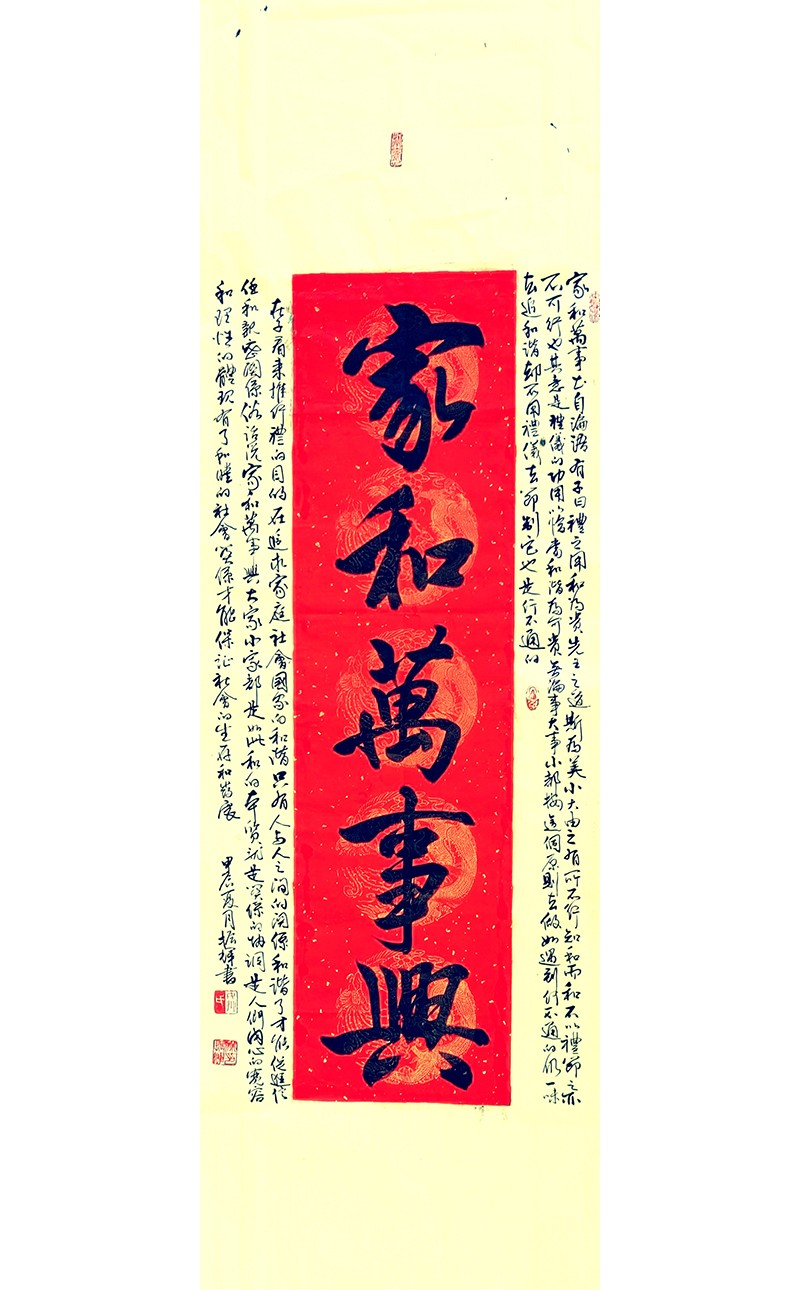 家和萬事興
家和萬事出自論語有子曰禮之用和為貴先王之道斯為美小大由之有所不行知和而和不以禮節之亦
不可行也其意是禮儀的功用以恰當和諧為可貴無論事大事小都按這個原則去做如遇到行不通的仍一味
去追和諧卻不用禮儀去節制它也是行不通的
在子看來推行禮的目的在追求家庭社會國家的和諧只有人与人之间的関係和諧了才能促進信
任和親密関係俗話說家和萬事興大家小家都是如此和的本質就是関係的協調是人們內心的寬容
和理性的體現有了和睦的社會関係才能保证社會的生存和發展
甲辰夏月振輝書